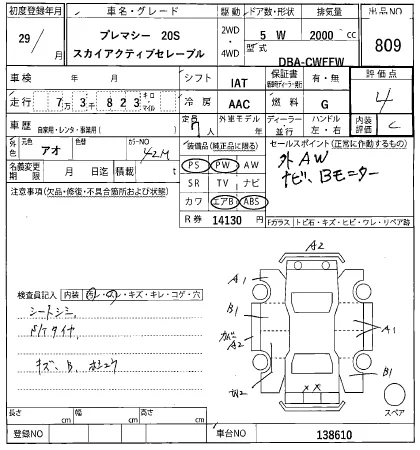 初度登録年月 車名・グレード 駆動 ドア数・形状 排気量 出品NO
29/月 プレマシー 20S 2WD・4WD 5 W 2000 cc 809
スカイアクティブセレーブル 型式 DBA-CWEFW
車検 年 月 シフト IAT 保証書 有・無 評価点 4
走行 7万3千823 キロ・マイル 冷房 AAC 燃料 G
車歴 自家用・レンタ・事業用( ) 定員 7人 外車モデル年 ディーラー・並行 ハンドル 左・右 内装評価 C
外色 元色 アオ カラーNO 42M 装備品(純正品に限る) セールスポイント(正常に作動するもの)
PS PW AW 外AW
名義変更期限 月 日迄 積載 t SR TV ナビ ナビ、Bモーター
注意事項(欠品・修復・不具合箇所および状態) カワ エアB ABS
R券 14130 円 Fガラス トビ石・キズ・ヒビ・ワレ・リペア跡
A2
A1
B1
A1
A2
B1
A2
××
スペア
検査員記入 内装 汚レ・スレ・キズ・キレ・コゲ・穴
シートシミ
キズ、B、ホシュウ
長さ cm 幅 cm 高さ cm
登録NO 車台NO 138610